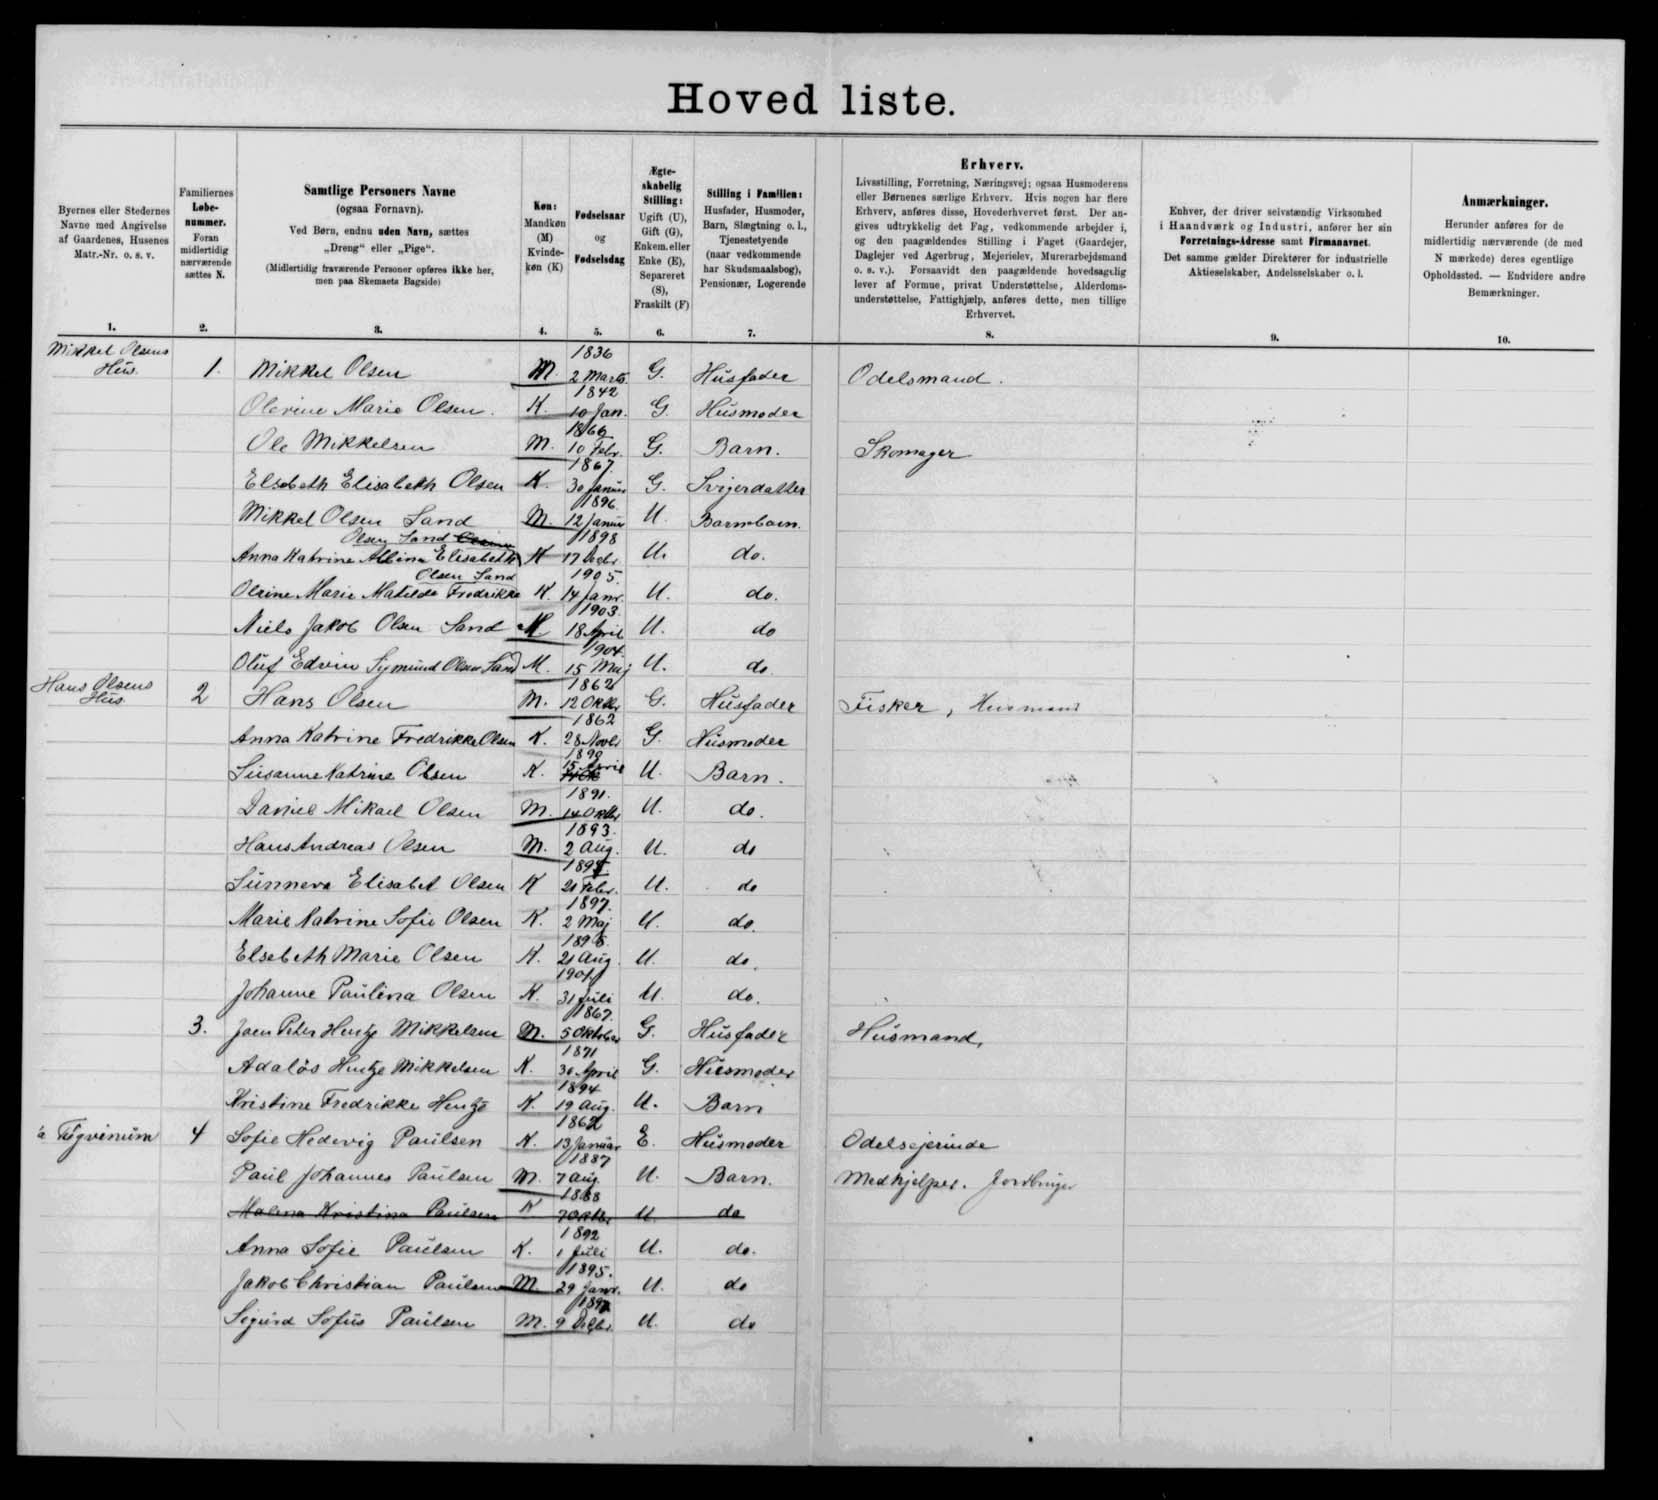 Hoved liste.
Byernes eller Stedernes
Navne med Angivelse
af Gaardenes, Husenes
Matr.-Nr. o. s. v.
1.
Familiernes
Løbe-
nummer.
Foran
midlertidig
nærværende
sættes N.
2.
Samtlige Personers Navne
(ogsaa Fornavn).
Ved Børn, endnu uden Navn, sættes
„Dreng“ eller „Pige“.
(Midlertidig fraværende Personer opføres ikke her,
men paa Skemaets Bagside)
3.
Køn:
Mandkøn
(M)
Kvinde-
køn (K)
4.
Fødselsaar
og
Fødselsdag
5.
Ægte-
skabelig
Stilling:
Ugift (U),
Gift (G),
Enkem. eller
Enke (E),
Separeret
(S),
Fraskilt (F)
6.
Stilling i Familien:
Husfader, Husmoder,
Barn, Slægtning o. l.,
Tjenestetyende
(naar vedkommende
har Skudsmaalsbog),
Pensionær, Logerende
7.
Erhverv.
Livsstilling, Forretning, Næringsvej; ogsaa Husmoderens
eller Børnenes særlige Erhverv. Hvis nogen har flere
Erhverv, anføres disse, Hovederhvervet først. Der an-
gives udtrykkelig det Fag, vedkommende arbejder i,
og den paagældendes Stilling i Faget (Gaardejer,
Daglejer ved Agerbrug, Mejerielev, Murerarbejdsmand
o. s. v.). Forsaavidt den paagældende hovedsagelig
lever af Formue, privat Understøttelse, Alderdoms-
understøttelse, Fattighjælp, anføres dette, men tillige
Erhvervet.
8.
Enhver, der driver selvstændig Virksomhed
i Haandværk og Industri, anfører her sin
Forretnings-Adresse samt Firmanavnet.
Det samme gælder Direktører for industrielle
Aktieselskaber, Andelsselskaber o. l.
9.
Anmærkninger.
Herunder anføres for de
midlertidig nærværende (de med
N mærkede) deres egentlige
Opholdssted. — Endvidere andre
Bemærkninger.
10.
Mikkel Olsens Hus. 1. Mikkel Olsen M. 1836 2 Marts G. Husfader Odelsmand.
Olevine Marie Olsen. K. 1842 10 Jan. G. Husmoder
Ole Mikkelsen M. 1866 10 Febr. G. Barn. Skomager
Elsebeth Elisabeth Olsen K. 1867. 30 Januar G. Svigerdatter
Mikkel Olsen Sand M. 1896. 12 Januar U. Barnebarn.
Olsen Sand
Anna Katrine Albina Elisabeth K 1898 17 Decbr. U. do.
Olsen Sand
Olrine Marie Matilde Fredrikke K. 1905. 14 Janr. U. do.
Niels Jakob Olsen Sand M 1903. 18 April U. do
Oluf Edvin Sigmund Olsen Sand M. 1904. 15 Maj U. do.
Hans Olsens Hus. 2 Hans Olsen M. 1862 12 Oktbr G. Husfader Fisker, Husmand
Anna Katrine Fredrikke Olsen K. 1862 28 Novbr G. Husmoder
Susanne Katrine Olsen K. 1890 15 April U. Barn.
Daniel Mikael Olsen M. 1891. 14 Oktbr U. do.
Hans Andreas Olsen M. 1893. 2 Aug. U. do
Sunneva Elisabet Olsen K 1895 21 Febr. U. do
Marie Katrine Sofie Olsen K. 1897. 2 Maj U. do.
Elsebeth Marie Olsen K. 21 Aug. U. do.
Johanne Paulina Olsen K. 31 Juli U. do.
3. Joen Peter Hentze Mikkelsen M. 1867. 5 Oktober G. Husfader Husmand.
Adalós Hentze Mikkelsen K. 1871 30 April G. Husmoder
Kristine Fredrikke Hentze K. 1894 19 Aug. U. Barn
4 Sofie Hedevig Paulsen K. 1862 13 Januar E. Husmoder Odelsejerinde
Paul Johannes Paulsen M. 1887 7 Aug. U. Barn. Medhjelper. Jordbruger
Malena Kristina Paulsen K 1888 7 Oktbr U. do
Anna Sofie Paulsen K. 1892 1 Juli U. do.
Jakob Christian Paulsen M. 1895. 29 Janr. U. do
Sigurd Sofus Paulsen M. 9 Decbr. U. do